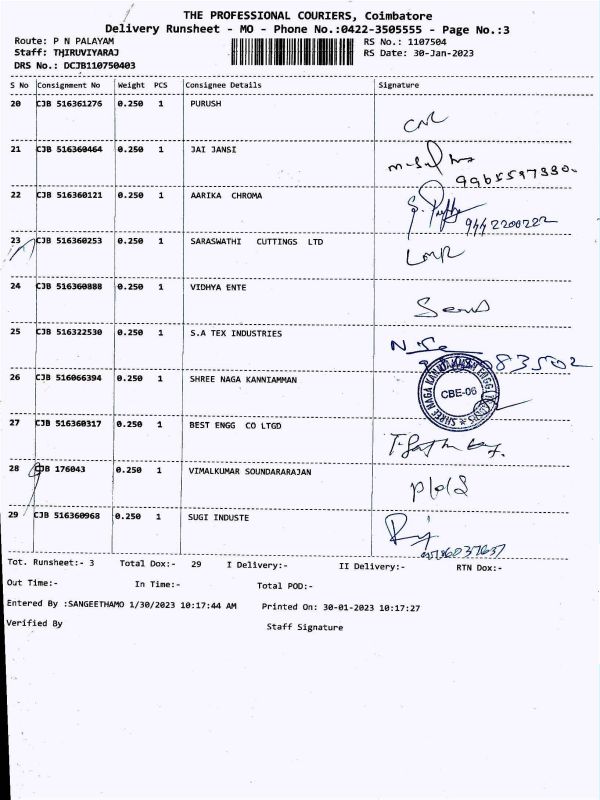 THE PROFESSIONAL COURIERS, Coimbatore
Delivery Runsheet - MO - Phone No.:0422-3505555 - Page No.:3
Route: P N PALAYAM RS No.: 1107504
Staff: THIRUVIYARAJ RS Date: 30-Jan-2023
DRS No.: DCJB110750403
S No Consignment No Weight PCS Consignee Details Signature
20 CJB 516361276 0.250 1 PURUSH
21 CJB 516360464 0.250 1 JAI JANSI
22 CJB 516360121 0.250 1 AARIKA CHROMA
9442200222
23 CJB 516360253 0.250 1 SARASWATHI CUTTINGS LTD
24 CJB 516360888 0.250 1 VIDHYA ENTE
25 CJB 516322530 0.250 1 S.A TEX INDUSTRIES
83502
26 CJB 516066394 0.250 1 SHREE NAGA KANNIAMMAN
CBE-06
27 CJB 516360317 0.250 1 BEST ENGG CO LTGD
28 CJB 176043 0.250 1 VIMALKUMAR SOUNDARARAJAN
29 CJB 516360968 0.250 1 SUGI INDUSTE
Tot. Runsheet:- 3 Total Dox:- 29 I Delivery:- II Delivery:- RTN Dox:-
Out Time:- In Time:- Total POD:-
Entered By :SANGEETHAMO 1/30/2023 10:17:44 AM Printed On: 30-01-2023 10:17:27
Verified By Staff Signature